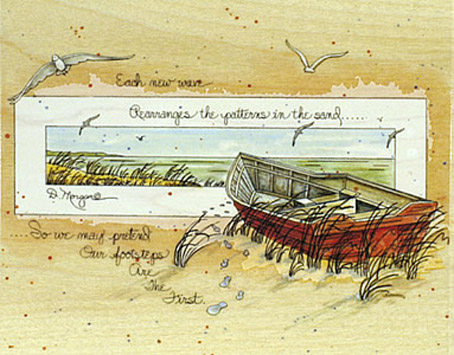 Each new wave
Rearranges the patterns in the sand.....
D. Morgan©
....So we may pretend
Our footsteps
Are
The
First.